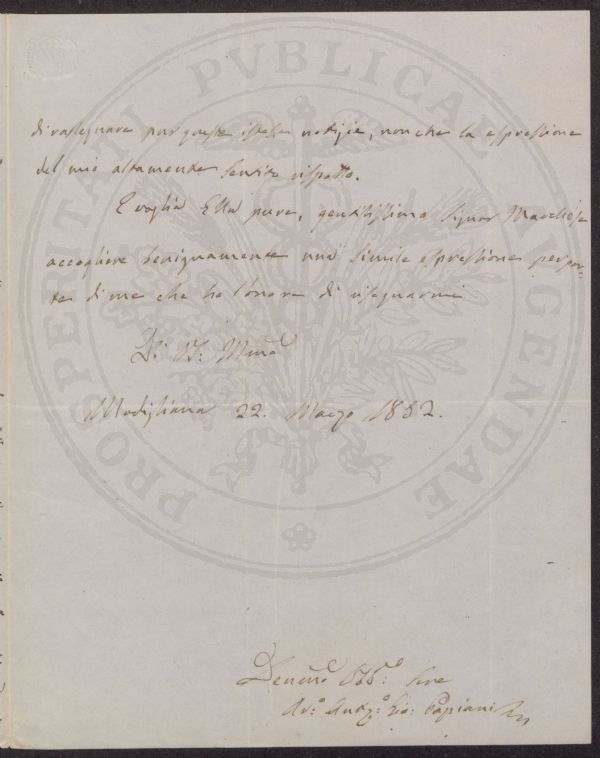 di rassegnare pur queste istesse notizie, nonche la espressione
del mio altamente sentito rispetto.
E voglia Ella pure, gentilissimo Signor Marchese
accogliere benignamente una simile espressione per par-
te di me che ho l'onore di rassegnarmi
Di V: 
Modigliana 22. Marzo 1852.
Devmo Obb:o Serv
Av:o Gio: Papiani
PROSPERITATI PVBLICAE AVGENDAE